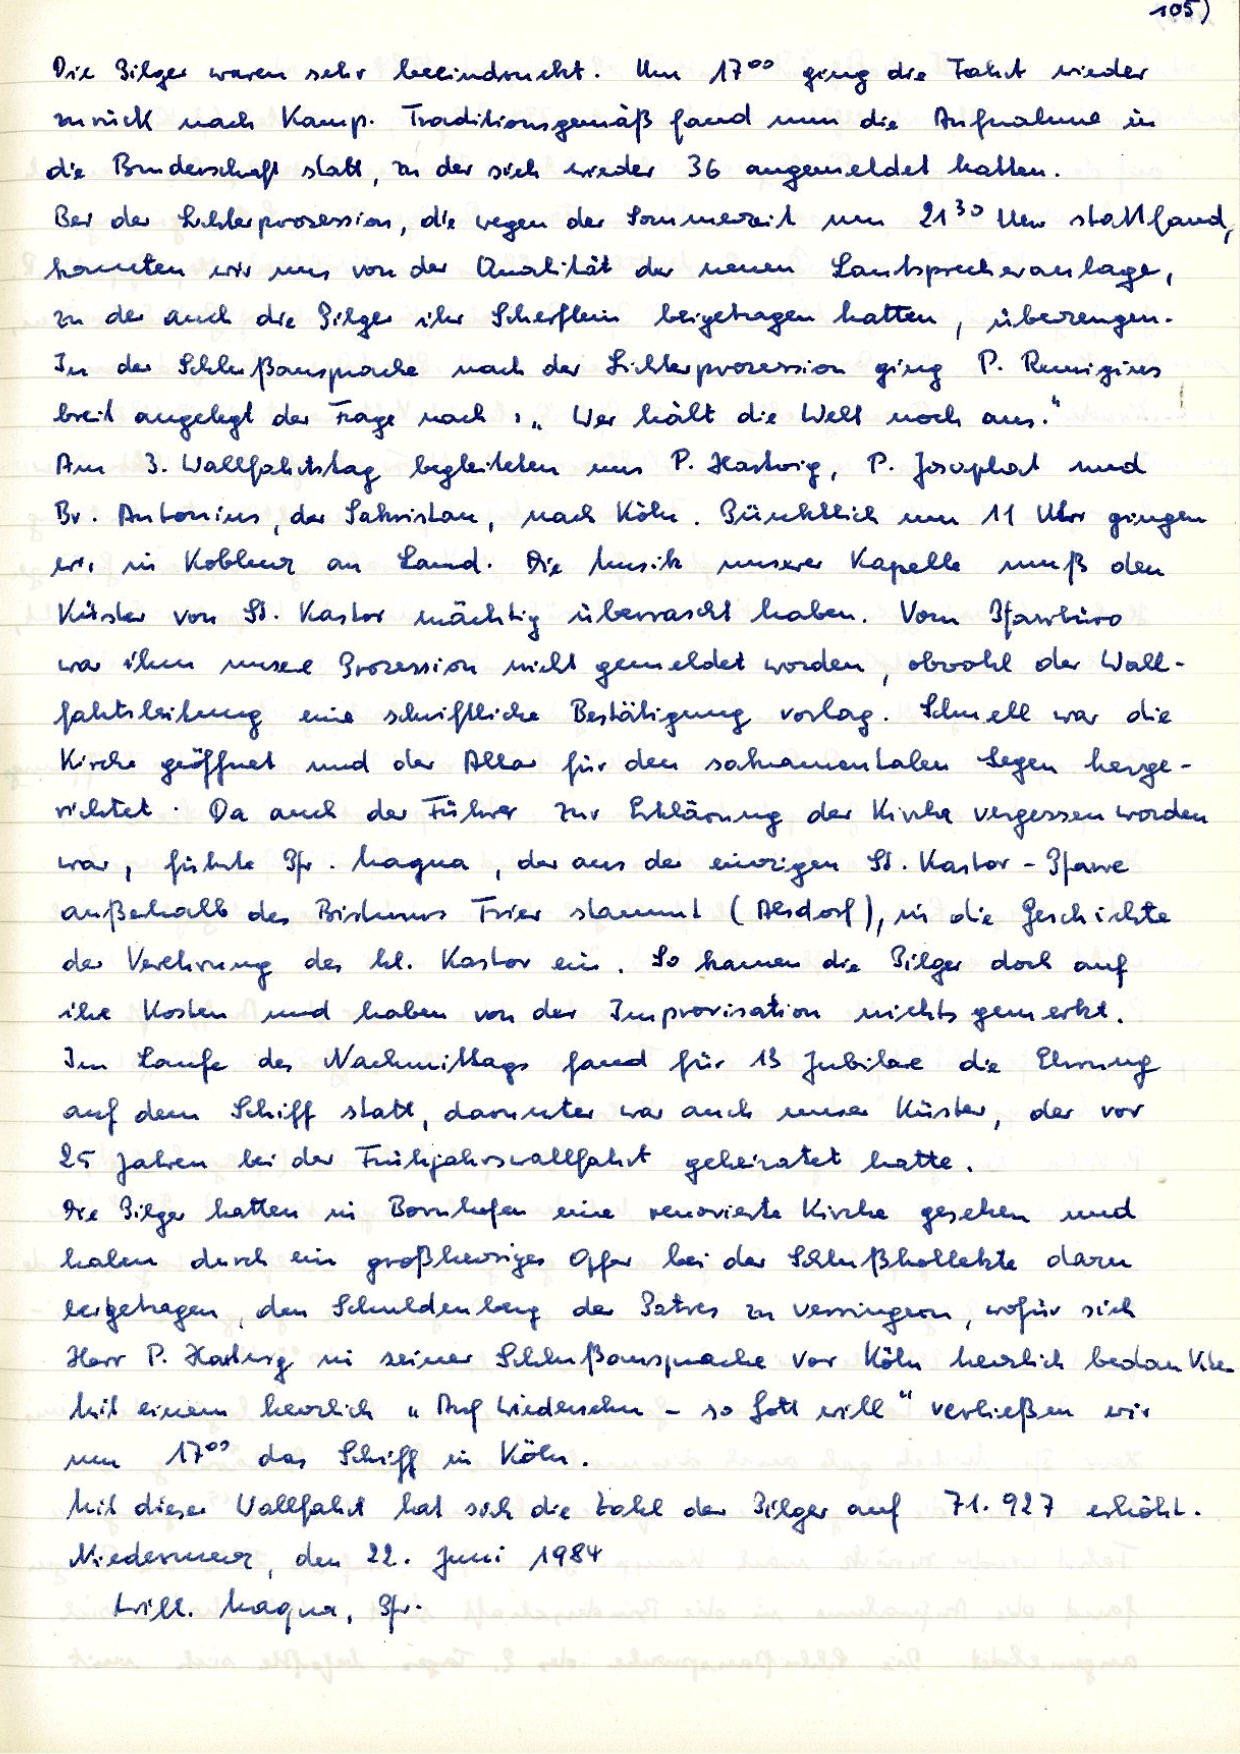 105)
Die Pilger waren sehr beeindruckt. Um 17⁰⁰ ging die Fahrt wieder
zurück nach Kamp. Traditionsgemäß fand nun die Aufnahme in
die Bruderschaft statt, zu der sich wieder 36 angemeldet hatten.
Bei der Lichterprozession, die wegen der Sommerzeit um 21³⁰ Uhr stattfand,
konnten wir uns von der Qualität der neuen Lautsprecheranlage,
zu der auch die Pilger ihr Scherflein beigetragen hatten, überzeugen.
In der Schlußansprache nach der Lichterprozession ging P. Remigius
breit angelegt der Frage nach: „Wer hält die Welt noch aus."
Am 3. Wallfahrtstag begleiteten uns P. Hartwig, P. Josaphat und
Br. Antonius, der Sakristan, nach Köln. Pünktlich um 11 Uhr gingen
wir in Koblenz an Land. Die Musik unserer Kapelle muß den
Küster von St. Kastor mächtig überrascht haben. Vom Pfarrbüro
war ihm unsere Prozession nicht gemeldet worden, obwohl der Wall-
fahrtsleitung eine schriftliche Bestätigung vorlag. Schnell war die
Kirche geöffnet und der Altar für den sakramentalen Segen herge-
richtet. Da auch der Führer zur Erklärung der Kirche vergessen worden
war, führte Pfr. Maqua, der aus der einzigen St. Kastor-Pfarre
außerhalb des Bistums Trier stammt (Alsdorf), in die Geschichte
der Verehrung des hl. Kastor ein. So kamen die Pilger doch auf
ihre Kosten und haben von der Improvisation nichts gemerkt.
Im Laufe des Nachmittags fand für 13 Jubilare die Ehrung
auf dem Schiff statt, darunter war auch unser Küster, der vor
25 Jahren bei der Frühjahrswallfahrt geheiratet hatte.
Die Pilger hatten in Bornhofen eine renovierte Kirche gesehen und
haben durch ein großherziges Opfer bei der Schlußkollekte dazu
beigetragen, den Schuldenberg der Patres zu verringern, wofür sich
Herr P. Hartwig in seiner Schlußansprache vor Köln herzlich bedankte.
Mit einem herzlich „Auf Wiedersehn – so Gott will" verließen wir
um 17⁰⁰ das Schiff in Köln.
Mit dieser Wallfahrt hat sich die Zahl der Pilger auf 71.927 erhöht.
Niedermerz, den 22. Juni 1984
Will. Maqua, Pfr.